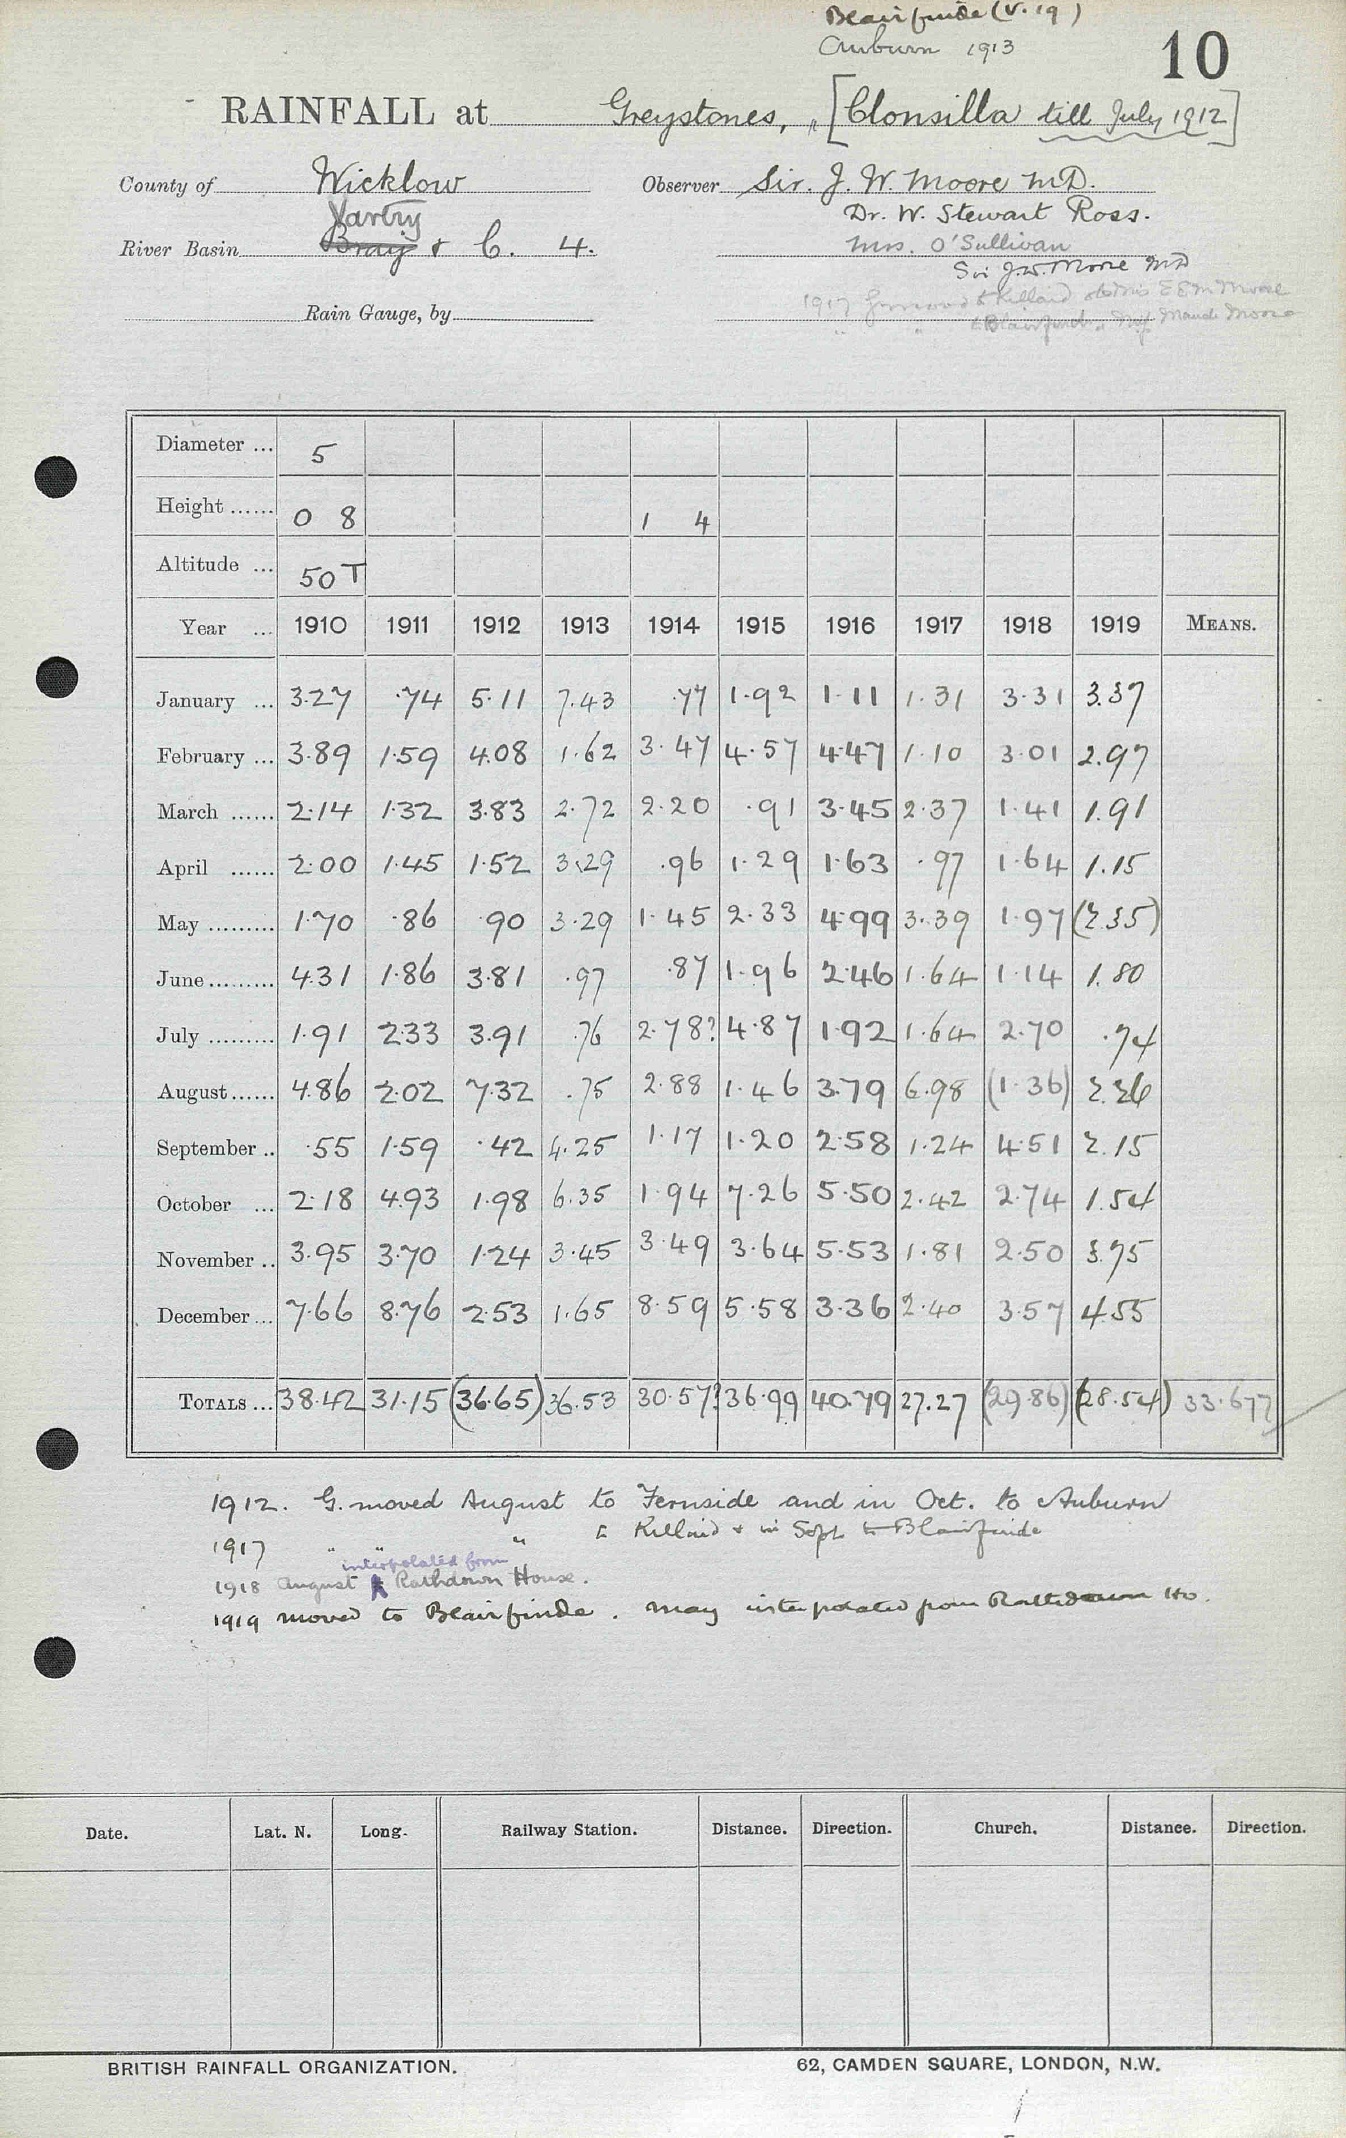 Blairfinde (V. 19)
Auburn 1913
10
RAINFALL at Greystones, „ [Clonsilla till July 1912]
County of Wicklow Observer Sir. J. W. Moore M.D.
Vartry Dr. W. Stewart Ross.
River Basin Bray & C. 4. Mrs. O'Sullivan
Sir J. W. Moore MD
Rain Gauge, by
1917 to Killaid Miss E E M Moore
„ „ to Blairfinde „ Miss Maude Moore
Diameter ... 5
Height ...... 0 8 1 4
Altitude ... 50 T
Year ... 1910 1911 1912 1913 1914 1915 1916 1917 1918 1919 MEANS.
January ... 3.27 .74 5.11 7.43 .77 1.92 1.11 1.31 3.31 3.37
February ... 3.89 1.59 4.08 1.62 3.47 4.57 4.47 1.10 3.01 2.97
March ...... 2.14 1.32 3.83 2.72 2.20 .91 3.45 2.37 1.41 1.91
April ...... 2.00 1.45 1.52 3.29 .96 1.29 1.63 .97 1.64 1.15
May ......... 1.70 .86 .90 3.29 1.45 2.33 4.99 3.39 1.97 (2.35)
June ......... 4.31 1.86 3.81 .97 .87 1.96 2.46 1.64 1.14 1.80
July ......... 1.91 2.33 3.91 .76 2.78? 4.87 1.92 1.64 2.70 .74
August...... 4.86 2.02 7.32 .75 2.88 1.46 3.79 6.98 (1.36) 2.26
September .. .55 1.59 .42 4.25 1.17 1.20 2.58 1.24 4.51 2.15
October ... 2.18 4.93 1.98 6.35 1.94 7.26 5.50 2.42 2.74 1.54
November .. 3.95 3.70 1.24 3.45 3.49 3.64 5.53 1.81 2.50 3.75
December ... 7.66 8.76 2.53 1.65 8.59 5.58 3.36 2.40 3.57 4.55
TOTALS ... 38.42 31.15 (36.65) 36.53 30.57? 36.99 40.79 27.27 (29.86) (28.54) 33.677
1912. G. moved August to Fernside and in Oct. to Auburn
1917 „ „ „ to Killaid & in Sept to Blairfinde
interpolated from
1918 August Rathdown House.
1919 moved to Blairfinde. May interpolated from Rathdown Ho.
Date. Lat. N. Long. Railway Station. Distance. Direction. Church. Distance. Direction.
BRITISH RAINFALL ORGANIZATION. 62, CAMDEN SQUARE, LONDON, N.W.